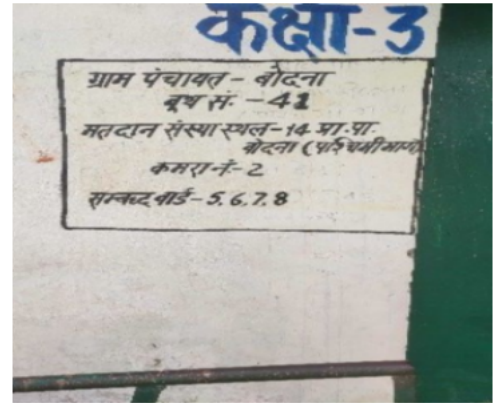 कक्षा-3
ग्राम पंचायत - बोदना
बूथ सं. - 41
मतदान संस्था स्थल-14 प्रा.पा.
बोदना (पश्चिमी भाग)
कमरा नं.-2
सम्बद्ध वार्ड-5,6,7,8